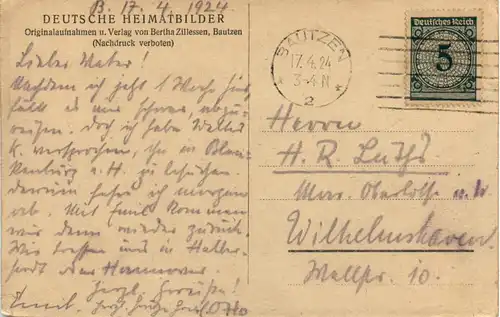 B. 17. 4. 1924
DEUTSCHE HEIMATBILDER
Originalaufnahmen u. Verlag von Bertha Zillessen, Bautzen
(Nachdruck verboten)
Lieber Vater!
Nachdem ich jetzt 1 Woche hier,
fällt es mir schwer, abzu-
reisen. Doch ich habe Walter
K. versprochen, ihn in Blan-
kenburg a. H. zu besuchen.
Darum fahre ich morgen
ab. Mit Emil kommen
wir dann wieder zurück.
Wir treffen uns in Halber-
stadt oder Hannover.
Herzl. Grüsse!
Emil. Otto
BAUTZEN
17.4.24
3-4 N
2
Deutsches Reich
5
Herrn
H. R. Luths
Wilhelmshaven
Wallstr. 10.